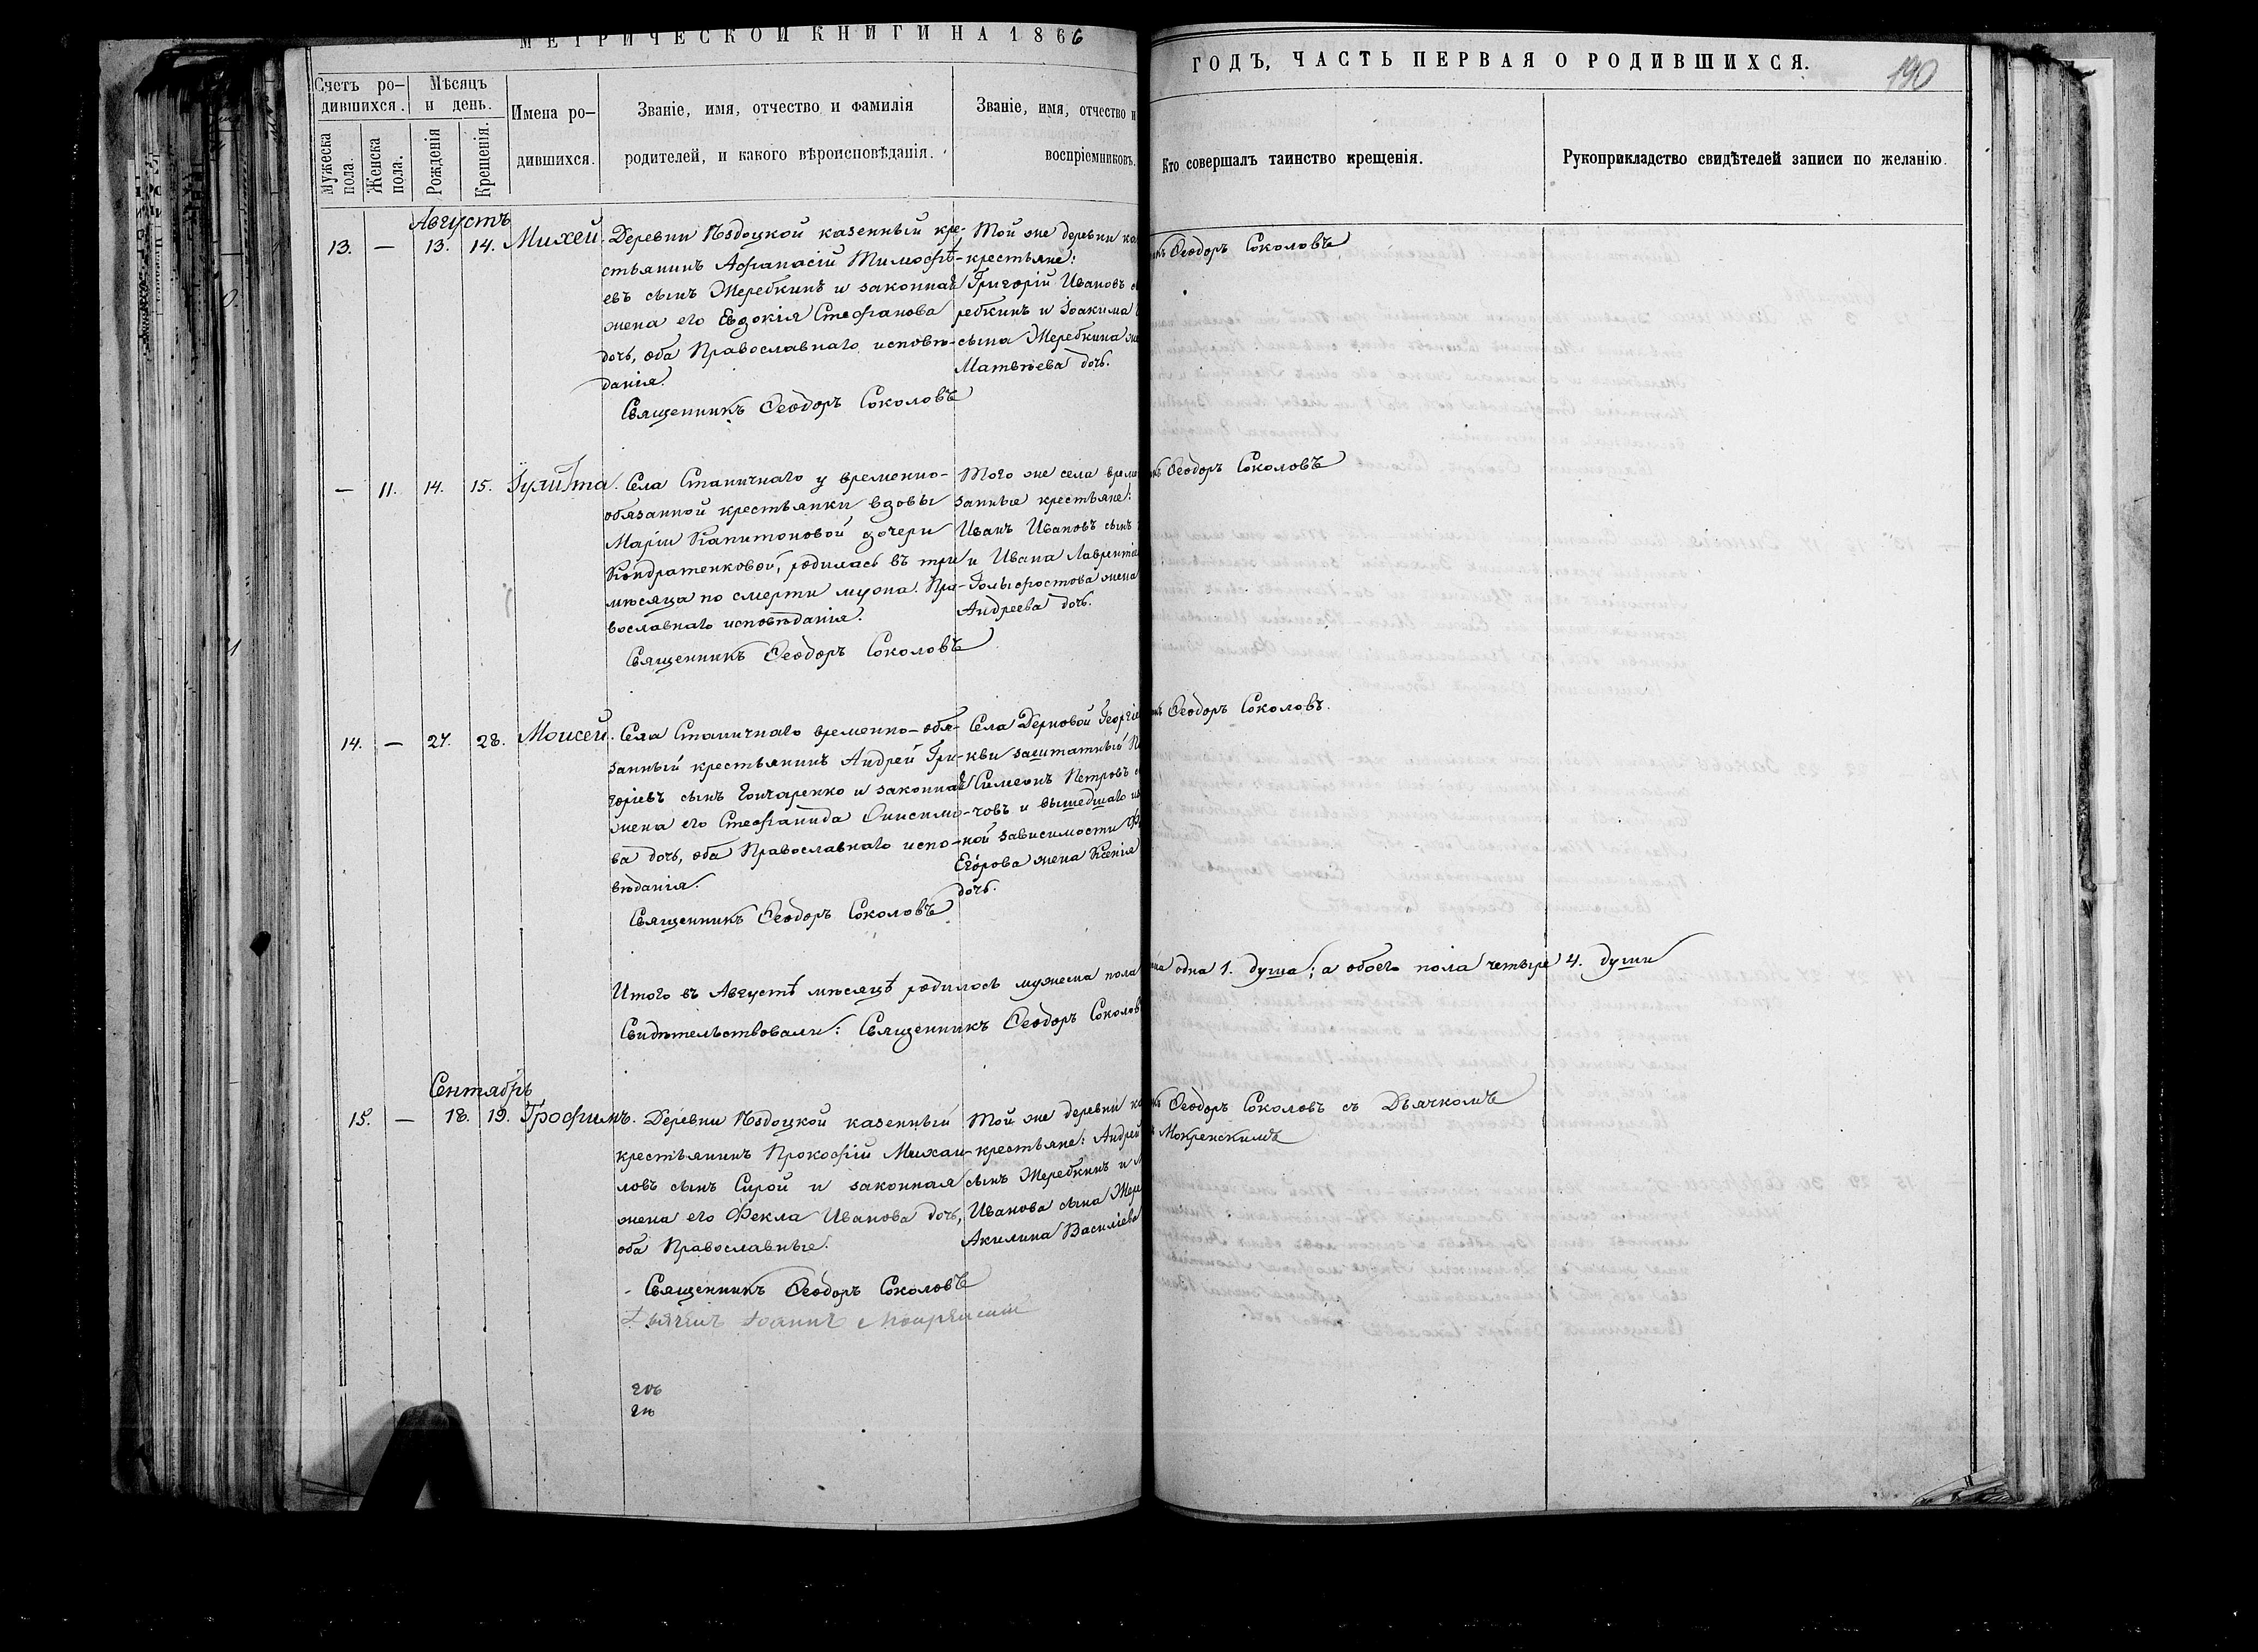 МЕТРИЧЕСКОЙ КНИГИ НА 1866
ГОДЪ, ЧАСТЬ ПЕРВАЯ О РОДИВШИХСЯ.
190
Счетъ ро-
дившихся.
Мужеска
пола.
Женска
пола.
Мѣсяцъ
и день.
Рожденія
Крещенія.
Имена ро-
дившихся.
Званіе, имя, отчество и фамилія
родителей, и какого вѣроисповѣданія.
Званіе, имя, отчество и
воспріемниковъ.
Кто совершалъ таинство крещенія.
Рукоприкладство свидѣтелей записи по желанію.
Августъ
13. — 13. 14. Михей.
Деревни Ѣздоцкой казенный кре-
стьянинъ Афанасій Тимофѣ-
евъ сынъ Жеребкинъ и законная
жена его Евдокія Стефанова
дочь, оба Православнаго исповѣ-
данія.
Священникъ Ѳеодоръ Соколовъ
Той же деревни ка
крестьяне:
Григорій Ивановъ с
ребкинъ и Іоакима
сына Жеребкина же
Матвѣева дочь.
икъ Ѳеодоръ Соколовъ
— 11. 14. 15. Іулитта.
Села Станичнаго у временно-
обязанной крестьянки вдовы
Маріи Капитоновой дочери
Кондратенковой, родилась въ три
мѣсяца по смерти мужа. Пра-
вославнаго исповѣданія.
Священникъ Ѳеодоръ Соколовъ
Того же села време
занные крестьяне:
Иванъ Ивановъ сынъ
и Ивана Лаврентіе
Голыхростова жена
Андреева дочь.
къ Ѳеодоръ Соколовъ
14. — 27. 28. Моисей.
Села Станичнаго временно-обя-
занный крестьянинъ Андрей Гри-
горіевъ сынъ Гончаренко и законная
жена его Стефанида Онисимо-
ва дочь, оба Православнаго испо-
вѣданія.
Священникъ Ѳеодоръ Соколовъ
Села Дерновой Георгіе
кви заштатный П
Симеонъ Петровъ с
човъ и вышедшаго из
ной зависимости
Егорова жена Ксенія
дочь.
икъ Ѳеодоръ Соколовъ.
Итого въ Августѣ мѣсяцѣ родилось мужеска пола
ка одна 1. душа; а обоего пола четыре 4. души
Свидѣтельствовали: Священникъ Ѳеодоръ Соколов
Сентябрь
15. — 18. 19. Трофимъ.
Деревни Ѣздоцкой казенный
крестьянинъ Прокофій Михаи-
ловъ сынъ Сирой и законная
жена его Фекла Иванова дочь,
оба Православные.
Священникъ Ѳеодоръ Соколовъ
Дьячекъ Іоаннъ Мокренскій
Той же деревни ка
крестьяне: Андрей
сынъ Жеребкинъ и
Иванова сына Жере
Акилина Василіева
къ Ѳеодоръ Соколовъ съ Дьячкомъ
Мокренскимъ